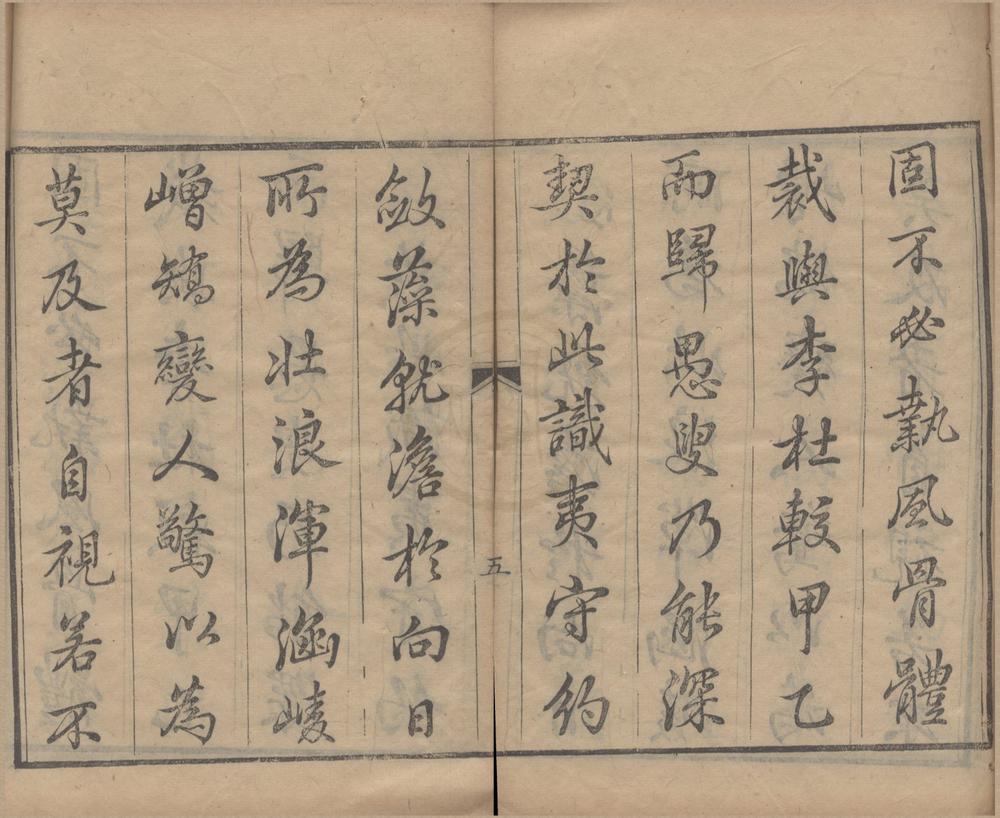 固不必執風骨體
裁與李杜較甲乙
而歸愚叟乃能深
契於此識夷守約
五
斂藻就澹於向日
所為壯浪渾涵崚
嶒矯變人驚以為
莫及者自視若不